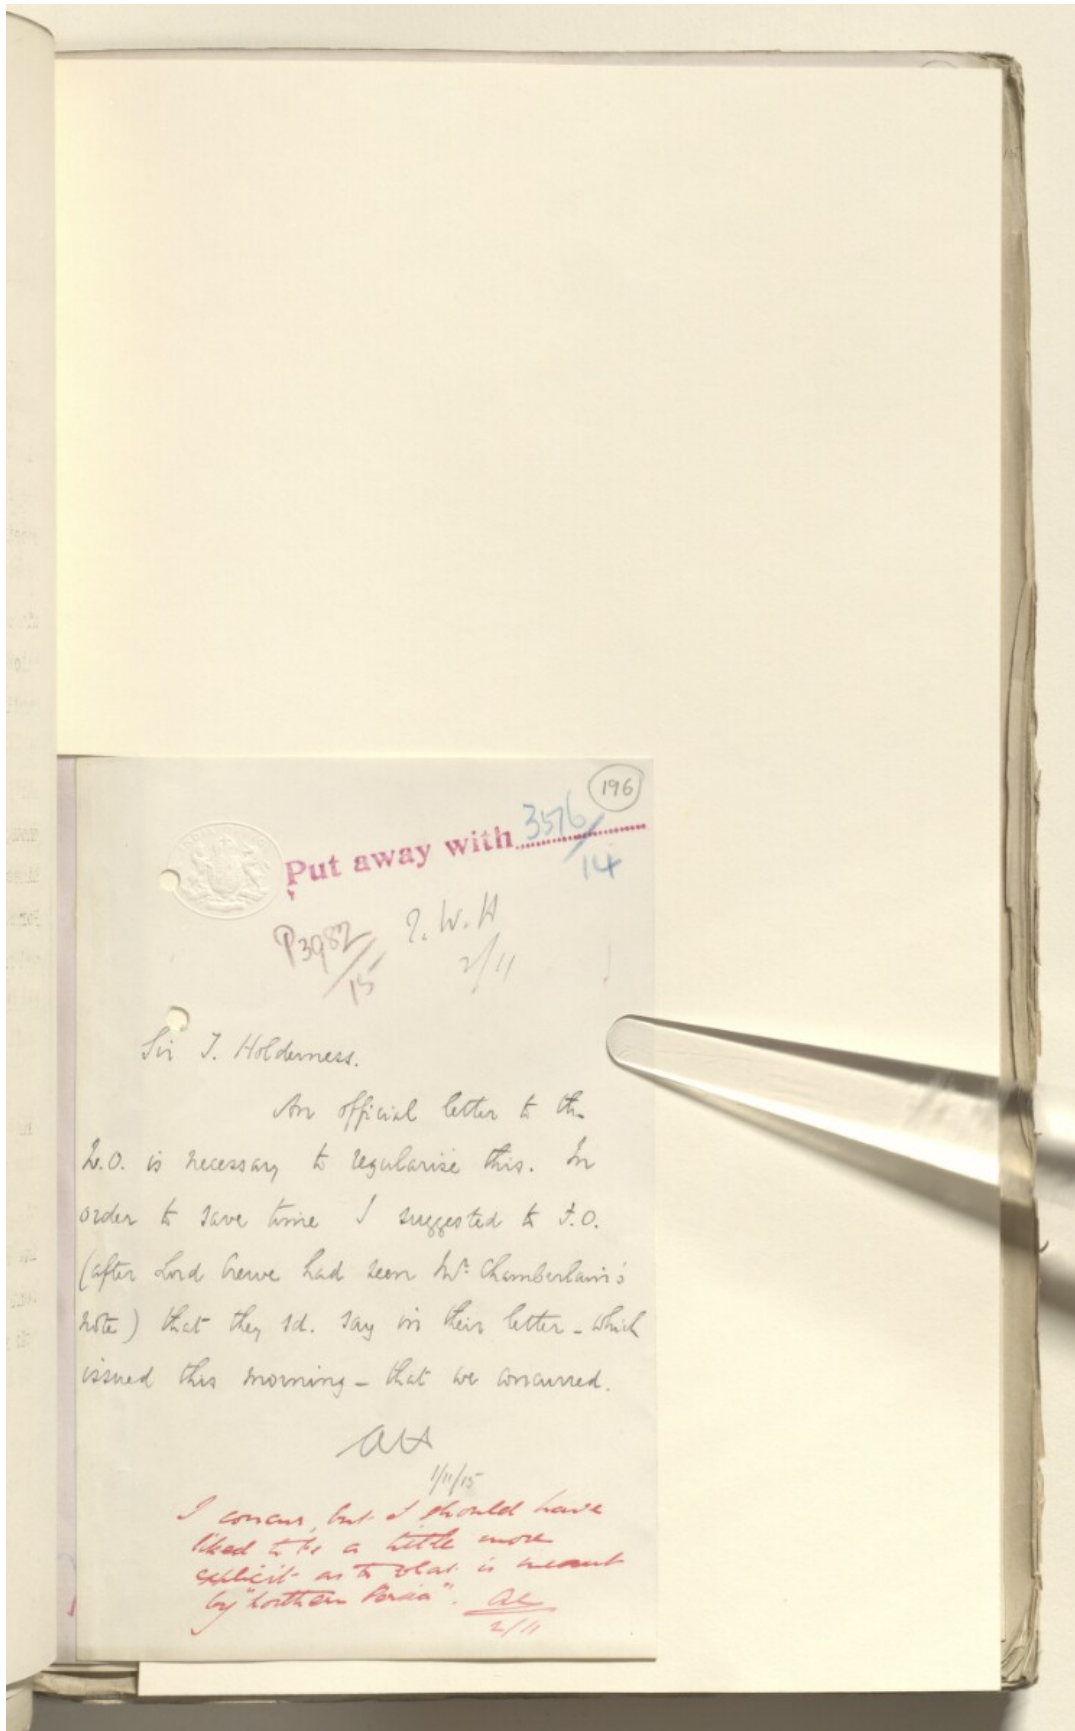 196
Put away with 3576/14
P3982/15
T.W.H
2/11
Sir T. Holderness.
An official letter to the
W.O. is necessary to regularise this. In
order to save time I suggested to F.O.
(after Lord Crewe had seen Mr. Chamberlain's
note) that they sd. say in their letter - which
issued this morning - that we concurred.
1/11/15
I concur, but I should have
liked to be a little more
explicit as to what is meant
by "Northern Persia". AC
2/11